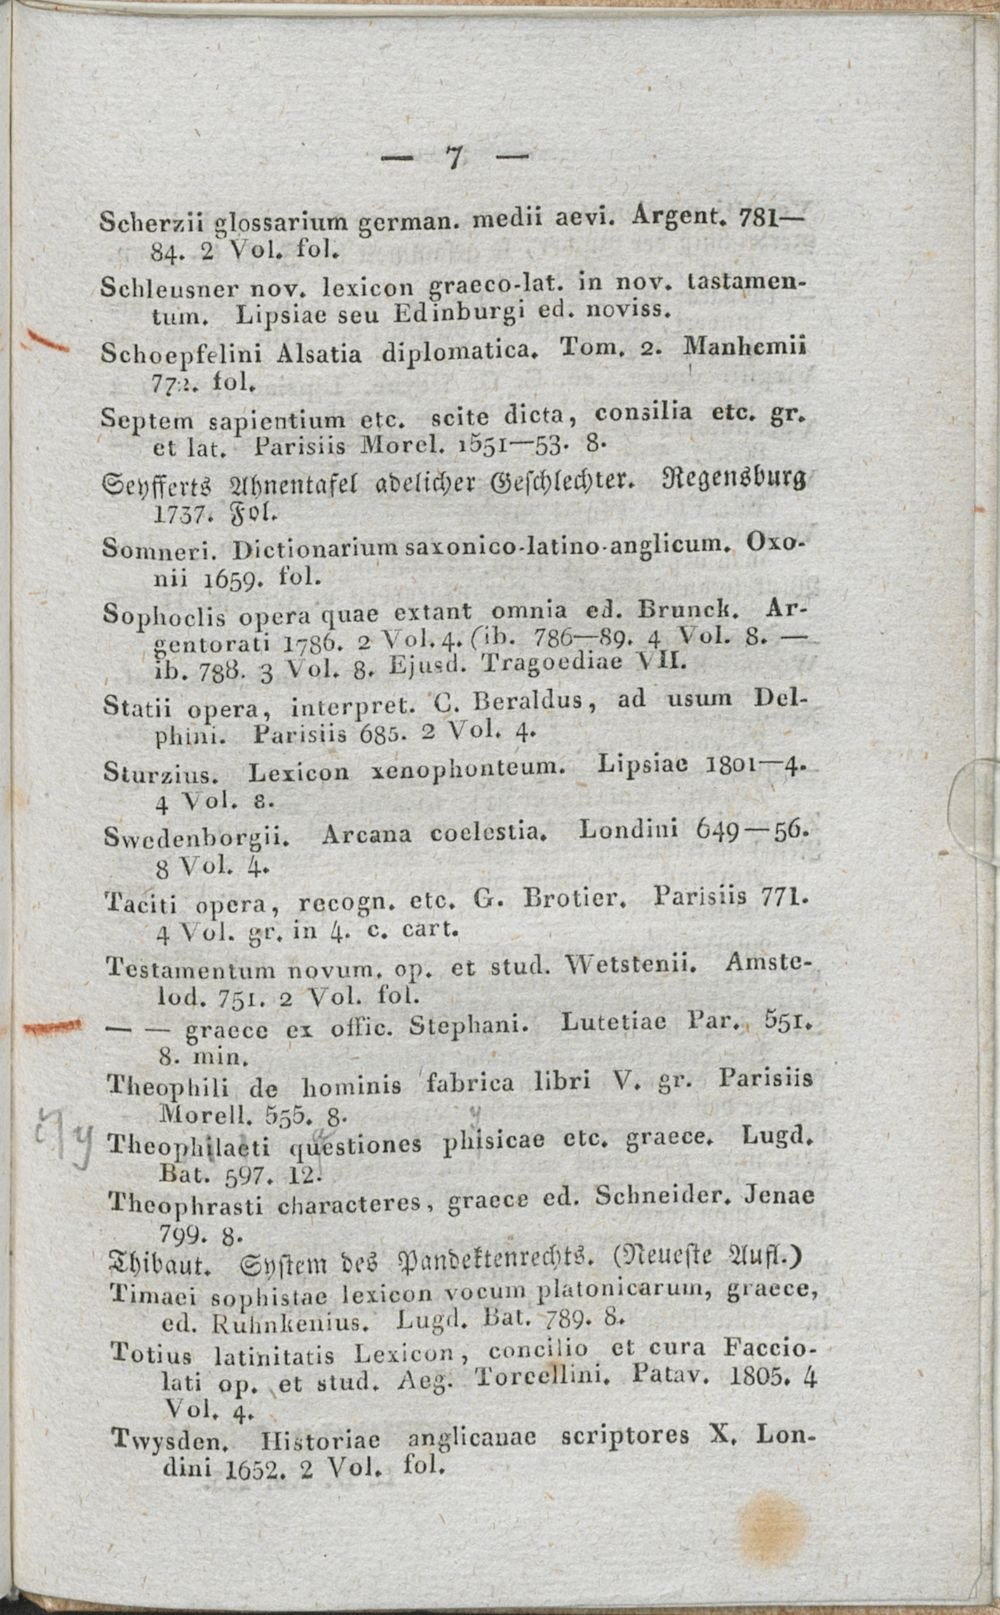 — 7 —
Scherzii glossarium german. medii aevi. Argent. 781—
84. 2 Vol. fol.
Schleusner nov. lexicon graeco-lat. in nov. tastamen-
tum. Lipsiae seu Edinburgi ed. noviss.
Schoepfelini Alsatia diplomatica. Tom. 2. Manhemii
772. fol.
Septem sapientium etc. scite dicta, consilia etc. gr.
et lat. Parisiis Morel. 1551—53. 8.
Seyfferts Ahnentafel adelicher Geschlechter. Regensburg
1737. Fol.
Somneri. Dictionarium saxonico-latino-anglicum. Oxo-
nii 1659. fol.
Sophoclis opera quae extant omnia ed. Brunck. Ar-
gentorati 1786. 2 Vol. 4. (ib. 786—89. 4 Vol. 8. —
ib. 788. 3 Vol. 8. Ejusd. Tragoediae VII.
Statii opera, interpret. C. Beraldus, ad usum Del-
phini. Parisiis 685. 2 Vol. 4.
Sturzius. Lexicon xenophonteum. Lipsiae 1801—4.
4 Vol. 8.
Swedenborgii. Arcana coelestia. Londini 649—56.
8 Vol. 4.
Taciti opera, recogn. etc. G. Brotier. Parisiis 771.
4 Vol. gr. in 4. c. cart.
Testamentum novum. op. et stud. Wetstenii. Amste-
lod. 751. 2 Vol. fol.
— — graece ex offic. Stephani. Lutetiae Par. 551.
8. min.
Theophili de hominis fabrica libri V. gr. Parisiis
Morell. 555. 8.
Theophilacti questiones phisicae etc. graece. Lugd.
Bat. 597. 12.
Theophrasti characteres, graece ed. Schneider. Jenae
799. 8.
Thibaut. System des Pandektenrechts. (Neueste Aufl.)
Timaei sophistae lexicon vocum platonicarum, graece,
ed. Ruhnkenius. Lugd. Bat. 789. 8.
Totius latinitatis Lexicon, concilio et cura Faccio-
lati op. et stud. Aeg. Torcellini. Patav. 1805. 4
Vol. 4.
Twysden. Historiae anglicanae scriptores X. Lon-
dini 1652. 2 Vol. fol.